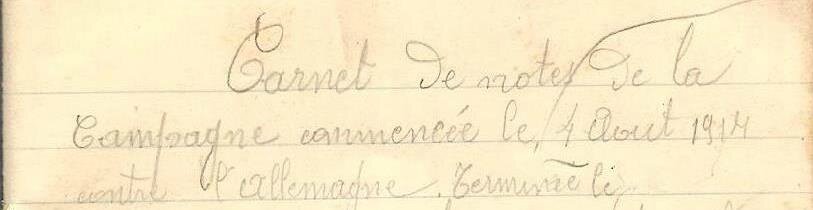 Carnet de notes de la
Campagne commencée le, 4 Aout 1914
contre l'allemagne. Terminée le,